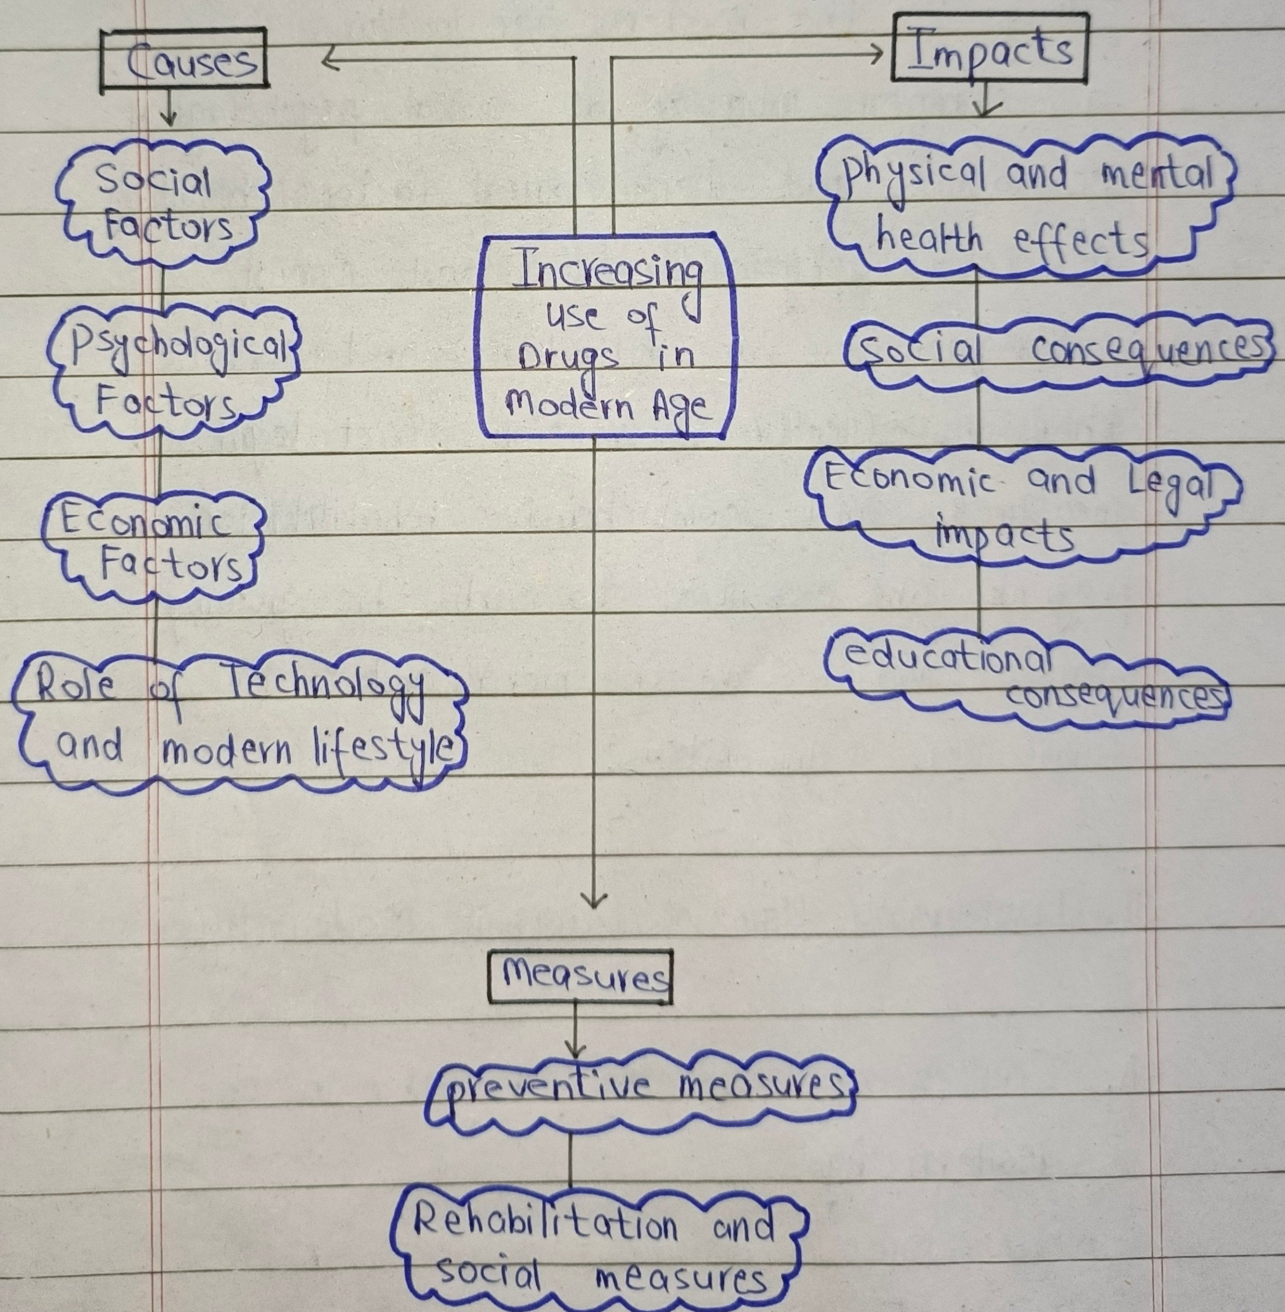 Causes
Impacts
Social
Factors
Psychological
Factors
Economic
Factors
Role of Technology
and modern lifestyle
Increasing
use of
Drugs in
Modern Age
physical and mental
health effects
social consequences
Economic and Legal
impacts
educational
consequences
Measures
preventive measures
Rehabilitation and
social measures